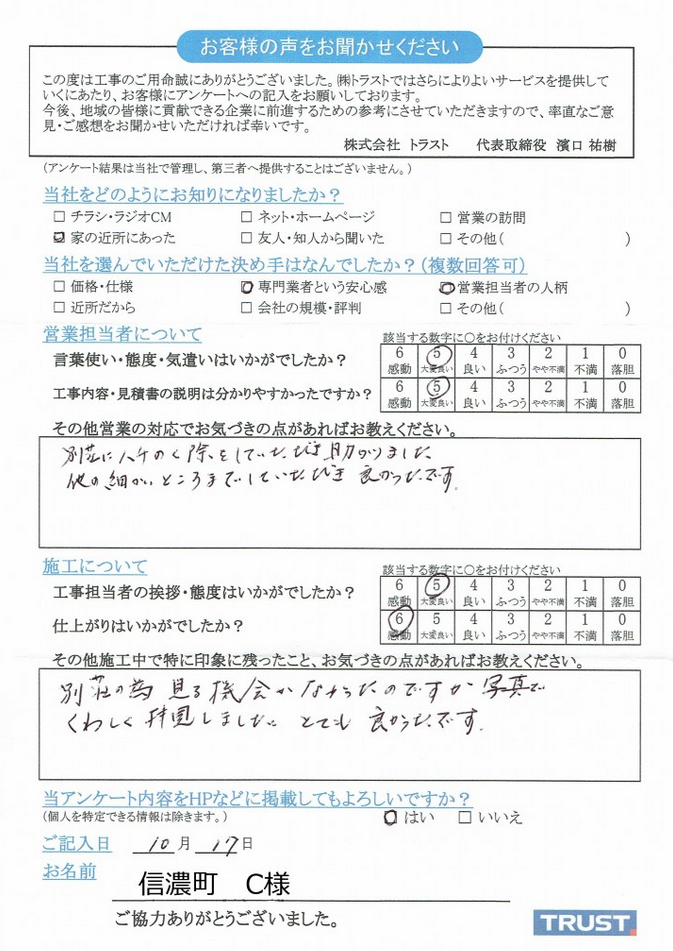 お客様の声をお聞かせください
この度は工事のご用命誠にありがとうございました。㈱トラストではさらによりよいサービスを提供して
いくにあたり、お客様にアンケートへの記入をお願いしております。
今後、地域の皆様に貢献できる企業に前進するための参考にさせていただきますので、率直なご意
見・ご感想をお聞かせいただければ幸いです。
株式会社 トラスト 代表取締役 濱口 祐樹
(アンケート結果は当社で管理し、第三者へ提供することはございません。)
当社をどのようにお知りになりましたか?
□ チラシ・ラジオCM □ ネット・ホームページ □ 営業の訪問
□ 家の近所にあった □ 友人・知人から聞いた □ その他( )
当社を選んでいただけた決め手はなんでしたか?(複数回答可)
□ 価格・仕様 □ 専門業者という安心感 □ 営業担当者の人柄
□ 近所だから □ 会社の規模・評判 □ その他( )
営業担当者について 該当する数字に○をお付けください
言葉使い・態度・気遣いはいかがでしたか? 6 5 4 3 2 1 0
感動 大変良い 良い ふつう やや不満 不満 落胆
工事内容・見積書の説明は分かりやすかったですか? 6 5 4 3 2 1 0
感動 大変良い 良い ふつう やや不満 不満 落胆
その他営業の対応でお気づきの点があればお教えください。
別荘にハチのく除をしていただき助かりました
他の細かいところまでしていただき 良かったです。
施工について 該当する数字に○をお付けください
工事担当者の挨拶・態度はいかがでしたか? 6 5 4 3 2 1 0
感動 大変良い 良い ふつう やや不満 不満 落胆
仕上がりはいかがでしたか? 6 5 4 3 2 1 0
感動 大変良い 良い ふつう やや不満 不満 落胆
その他施工中で特に印象に残ったこと、お気づきの点があればお教えください。
別荘の為 見る機会がなかったのですが 写真で
くわしく拝見しました とても 良かったです。
当アンケート内容をHPなどに掲載してもよろしいですか?
(個人を特定できる情報は除きます。) □ はい □ いいえ
ご記入日 10月 17日
お名前 信濃町 C様
ご協力ありがとうございました。
TRUST.